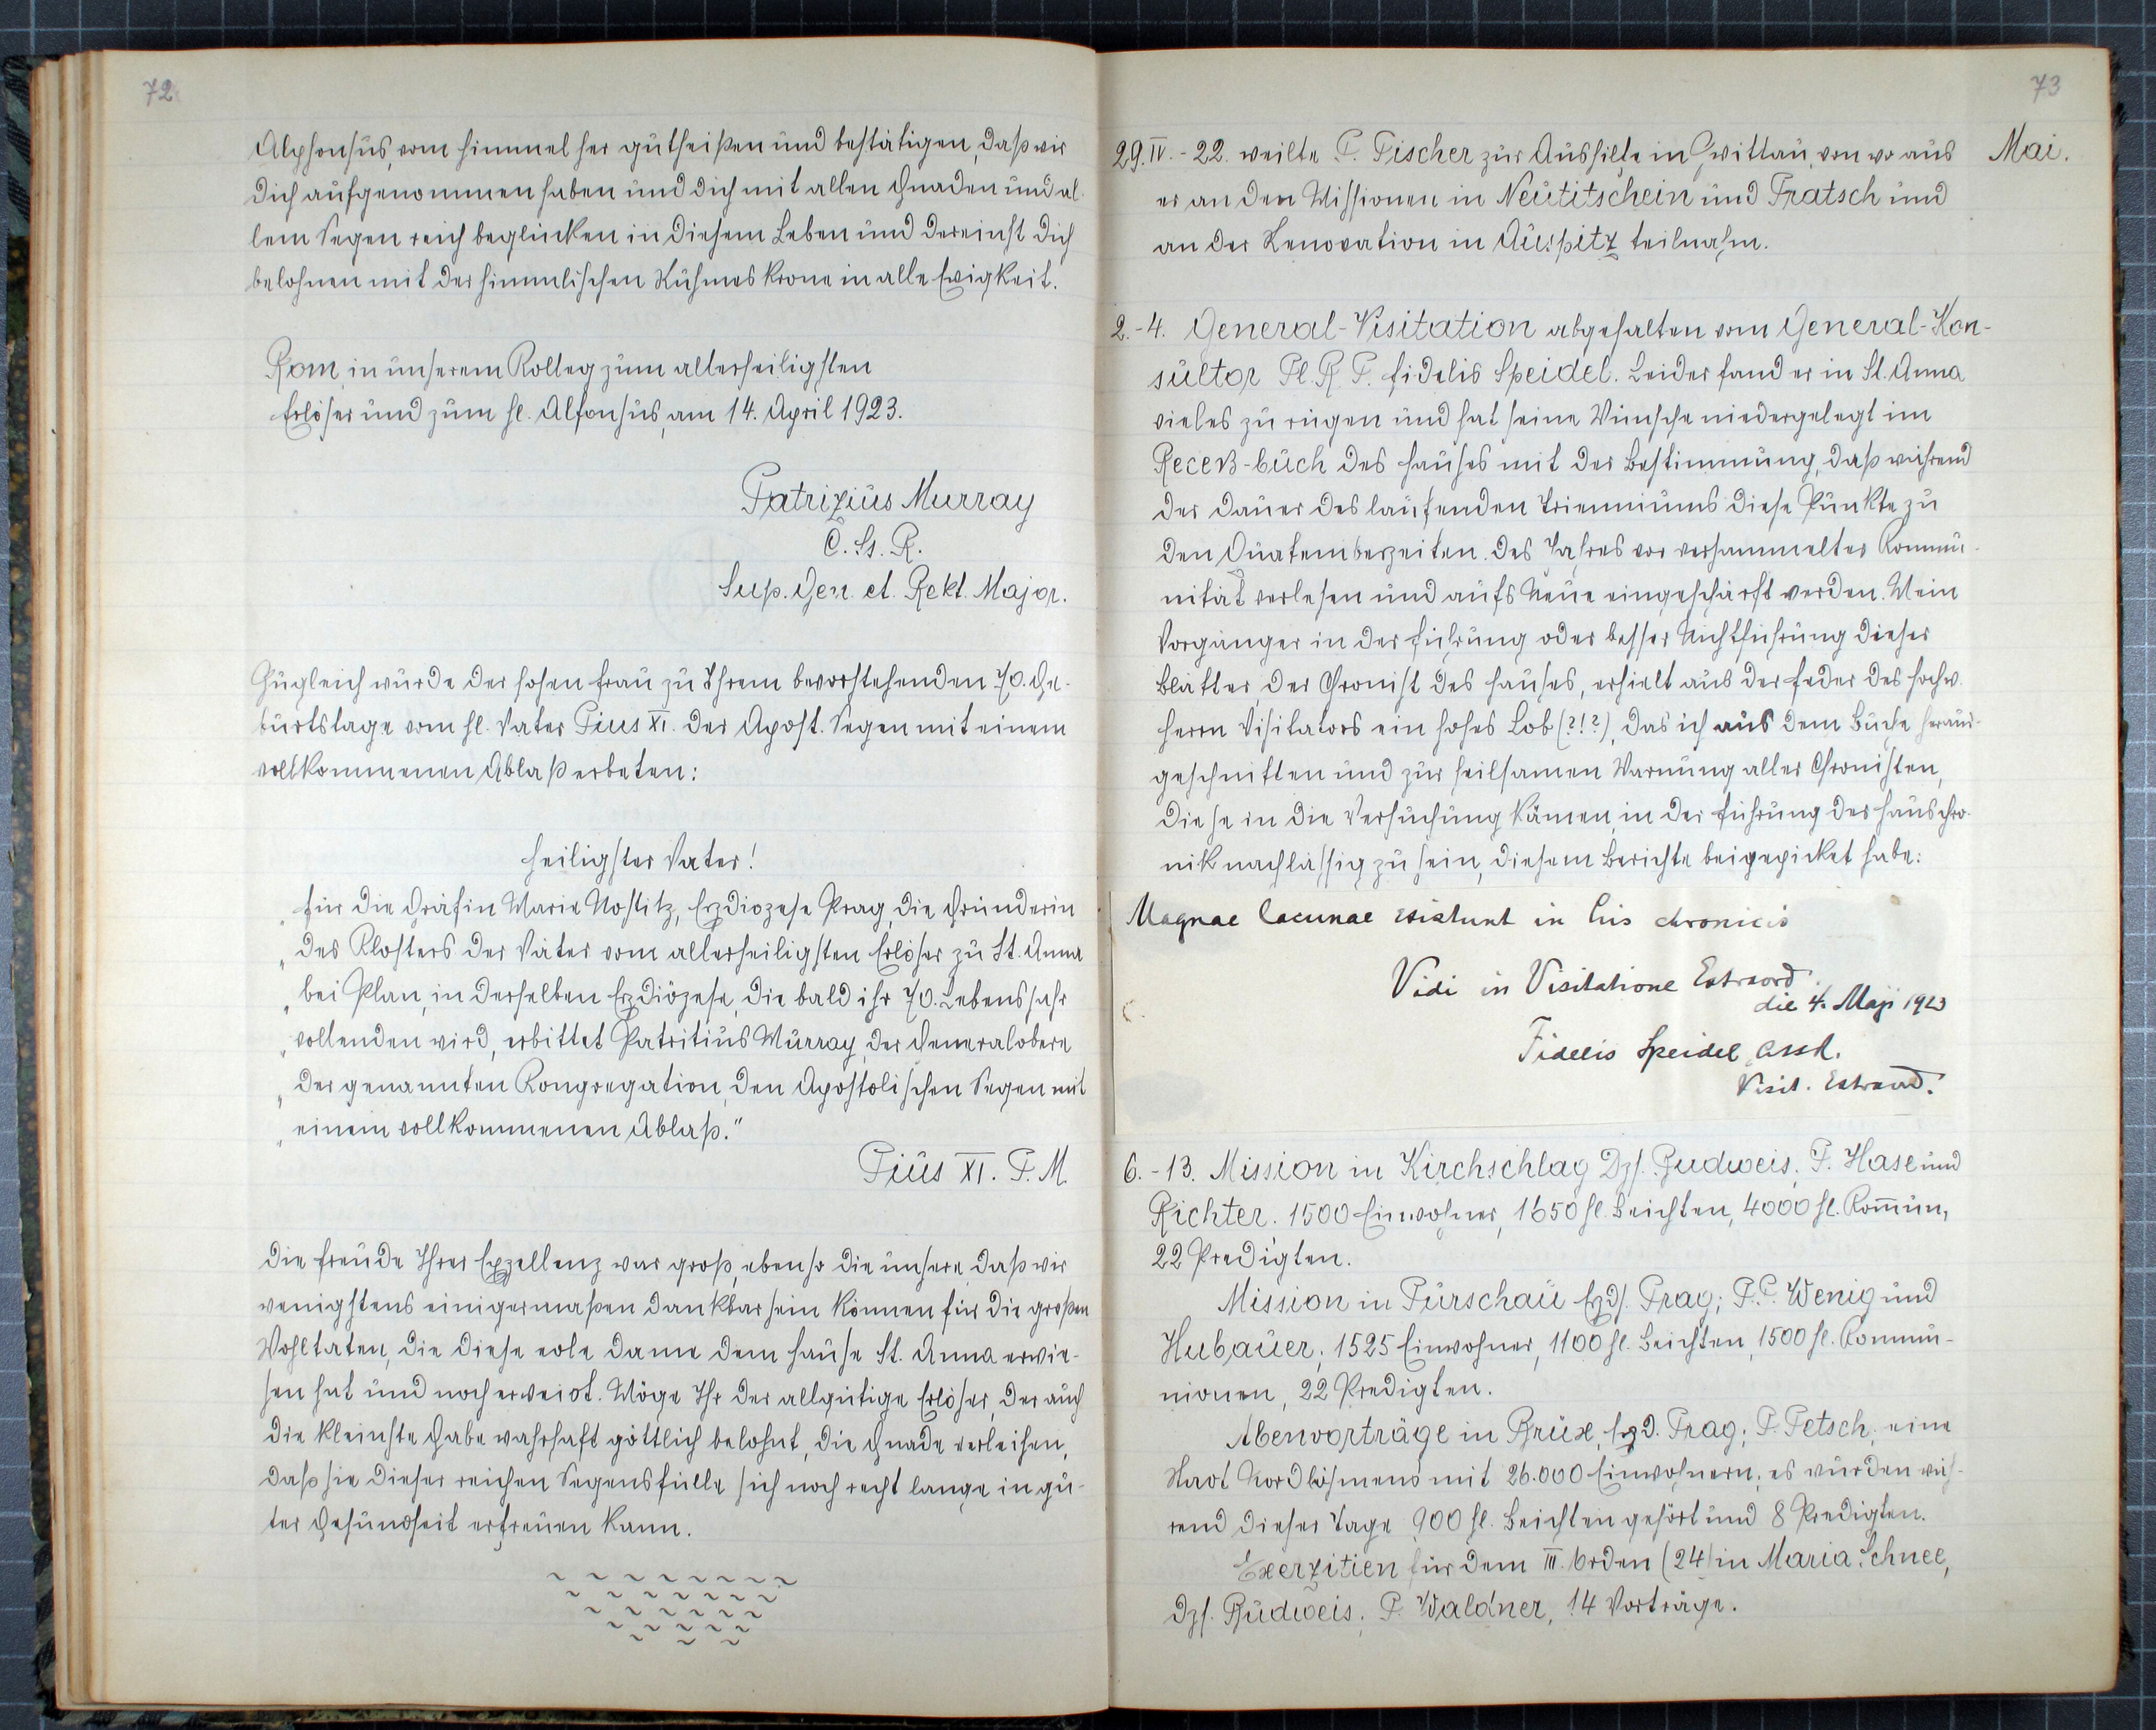 72
Alphonsus, vom Himmel her gutheißen und bestätigen, daß wir
dich aufgenommen haben und dich mit allen Gnaden und al-
lem Segen reich beglücken in diesem Leben und dereinst dich
belohnen mit der himmlischen Ruhmeskrone in alle Ewigkeit.
Rom, in unserem Kolleg zum allerheiligsten
Erlöser und zum hl. Alfonsus, am 14. April 1923.
Patrizius Murray
C. Ss. R.
Sup. Gen. et. Rekt. Major.
Zugleich wurde der hohen Frau zu Ihrem bevorstehenden 70. Ge-
burtstage vom hl. Vater Pius XI. der Apost. Segen mit einem
vollkommenen Ablaß erbeten:
Heiligster Vater!
„Für die Gräfin Marie Nostitz, Erzdiözese Prag, die Gründerin
„des Klosters der Väter vom allerheiligsten Erlöser zu St. Anna
„bei Plan, in derselben Erzdiözese, die bald ihr 70. Lebensjahr
„vollenden wird, erbittet Patritius Murray, der Generalobere
„der genannten Kongregation, den Apostolischen Segen mit
„einem vollkommenen Ablaß."
Pius XI. P. M.
Die Freude Ihrer Exzellenz war groß, ebenso die unsere, daß wir
wenigstens einigermaßen dankbar sein können für die großen
Wohltaten, die diese edle Dame dem Hause St. Anna erwie-
sen hat und noch erweist. Möge Ihr der allgütige Erlöser, der auch
die kleinste Gabe wahrhaft göttlich belohnt, die Gnade verleihen,
daß sie dieser reichen Segensfülle sich noch recht lange in gu-
ter Gesundheit erfreuen kann.
73
Mai.
29. IV. - 22. weilte P. Fischer zur Aushilfe in Zwittau, von wo aus
er an den Missionen in Neutitschein und Fratsch und
an der Renovation in Auspitz teilnahm.
2.-4. General-Visitation abgehalten vom General-Kon-
sultor Pl. R. P. Fidelis Speidel. Leider fand er in St. Anna
vieles zu rügen und hat seine Wünsche niedergelegt im
Receß-buch des Hauses mit der Bestimmung, daß während
der Dauer des laufenden Trienniums diese Punkte zu
den Quatemberzeiten des Jahres vor versammelter Kommu-
nität verlesen und aufs Neue eingeschärft werden. Mein
Vorgänger in der Führung oder besser Nichtführung dieser
Blätter, der Chronist des Hauses, erhielt aus der Feder des hochw.
Herrn Visitators ein hohes Lob (?!?), das ich aus dem Buche heraus-
geschnitten und zur heilsamen Warnung aller Chronisten,
die je in die Versuchung kämen, in der Führung der Hauschro-
nik nachlässig zu sein, diesem Berichte beigepickt habe:
Magnae lacunae existunt in his chronicis
Vidi in Visitatione Extraord.
die 4. Maji 1923
Fidelis Speidel, CSSR.
Visit. Extraord.
6.-13. Mission in Kirchschlag Dzs. Budweis; P. Hase und
Richter. 1500 Einwohner, 1650 hl. Beichten, 4000 hl. Kom̄un,
22 Predigten.
Mission in Pürschau Erzds. Prag; P.P. Wenig und
Hubauer; 1525 Einwohner, 1100 hl. Beichten, 1500 hl. Kommu-
nionen, 22 Predigten.
Abenvorträge in Brüx, Erzd. Prag; P. Petsch; eine
Stadt Nordböhmens mit 26.000 Einwohnern; es wurden wäh-
rend dieser Tage 900 hl. Beichten gehört und 8 Predigten.
Exerzitien für dem III. Orden (24) in Maria Schnee,
Dzs. Budweis. P. Waldner, 14 Vorträge.